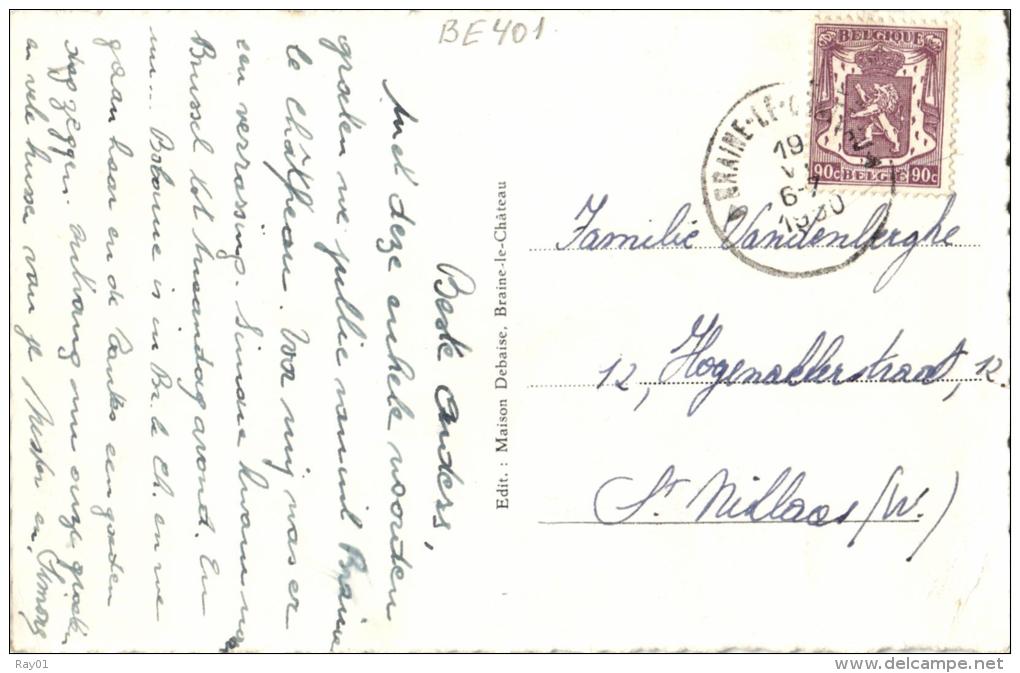 BE401
BELGIQUE
90c BELGIË 90c
BRAINE-LE-CH
19
6-7
1950
Beste Ouders,
Met deze enkele woorden
groeten we jullie vanuit Braine
le Château. Voor mij was er
een verrassing. Simone kwam naar
Brussel tot maandagavond. En
nu... Bobonne is in Br. le Ch. en we
gaan haar en de Tantes een goeden
dag zeggen. Ontvang nu onze groeten
en vele kussen van je en Simone
Edit. : Maison Debaise, Braine-le-Château
Familie Vandenberghe
12, Hogenakkerstraat, 12.
St Niklaas (W.)
Ray01
delcampe.net